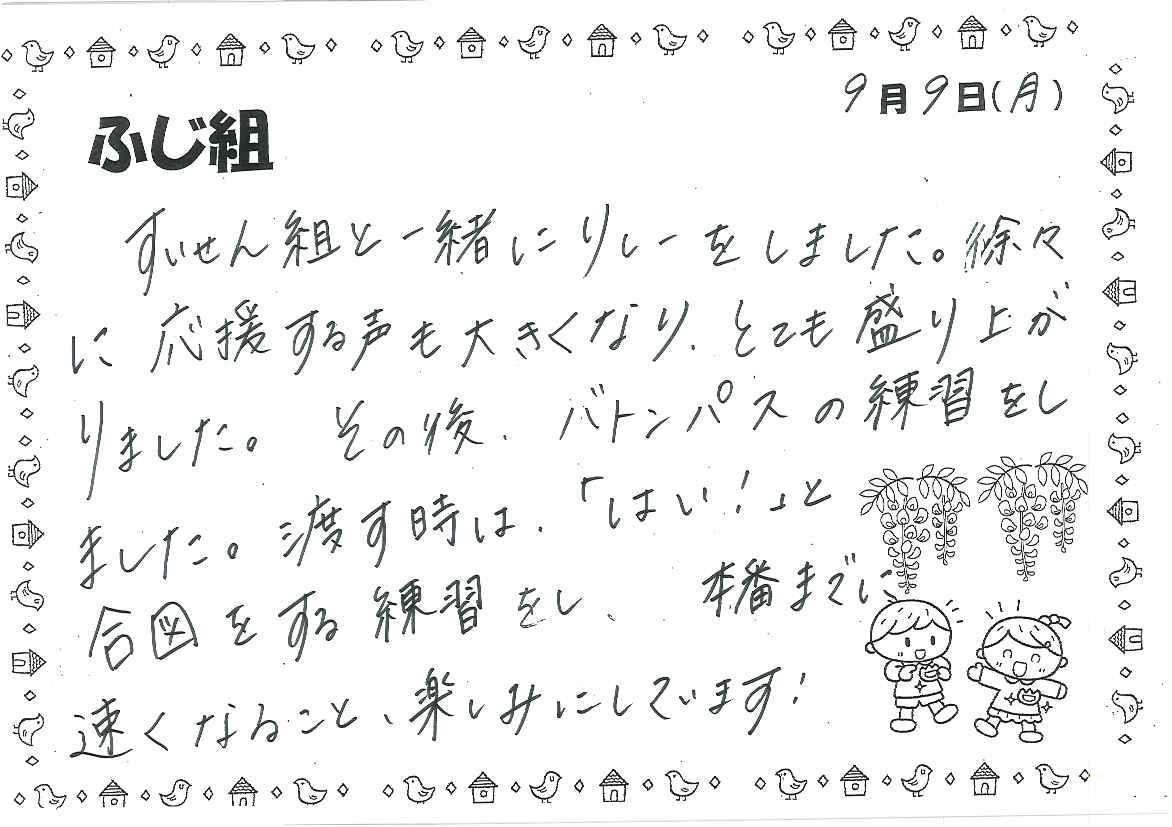 9月9日(月)
ふじ組
すいせん組と一緒にリレーをしました。徐々
に応援する声も大きくなり、とても盛り上が
りました。その後、バトンパスの練習をし
ました。渡す時は、「はい!」と
合図をする練習をし、本番までに
速くなること、楽しみにしています!